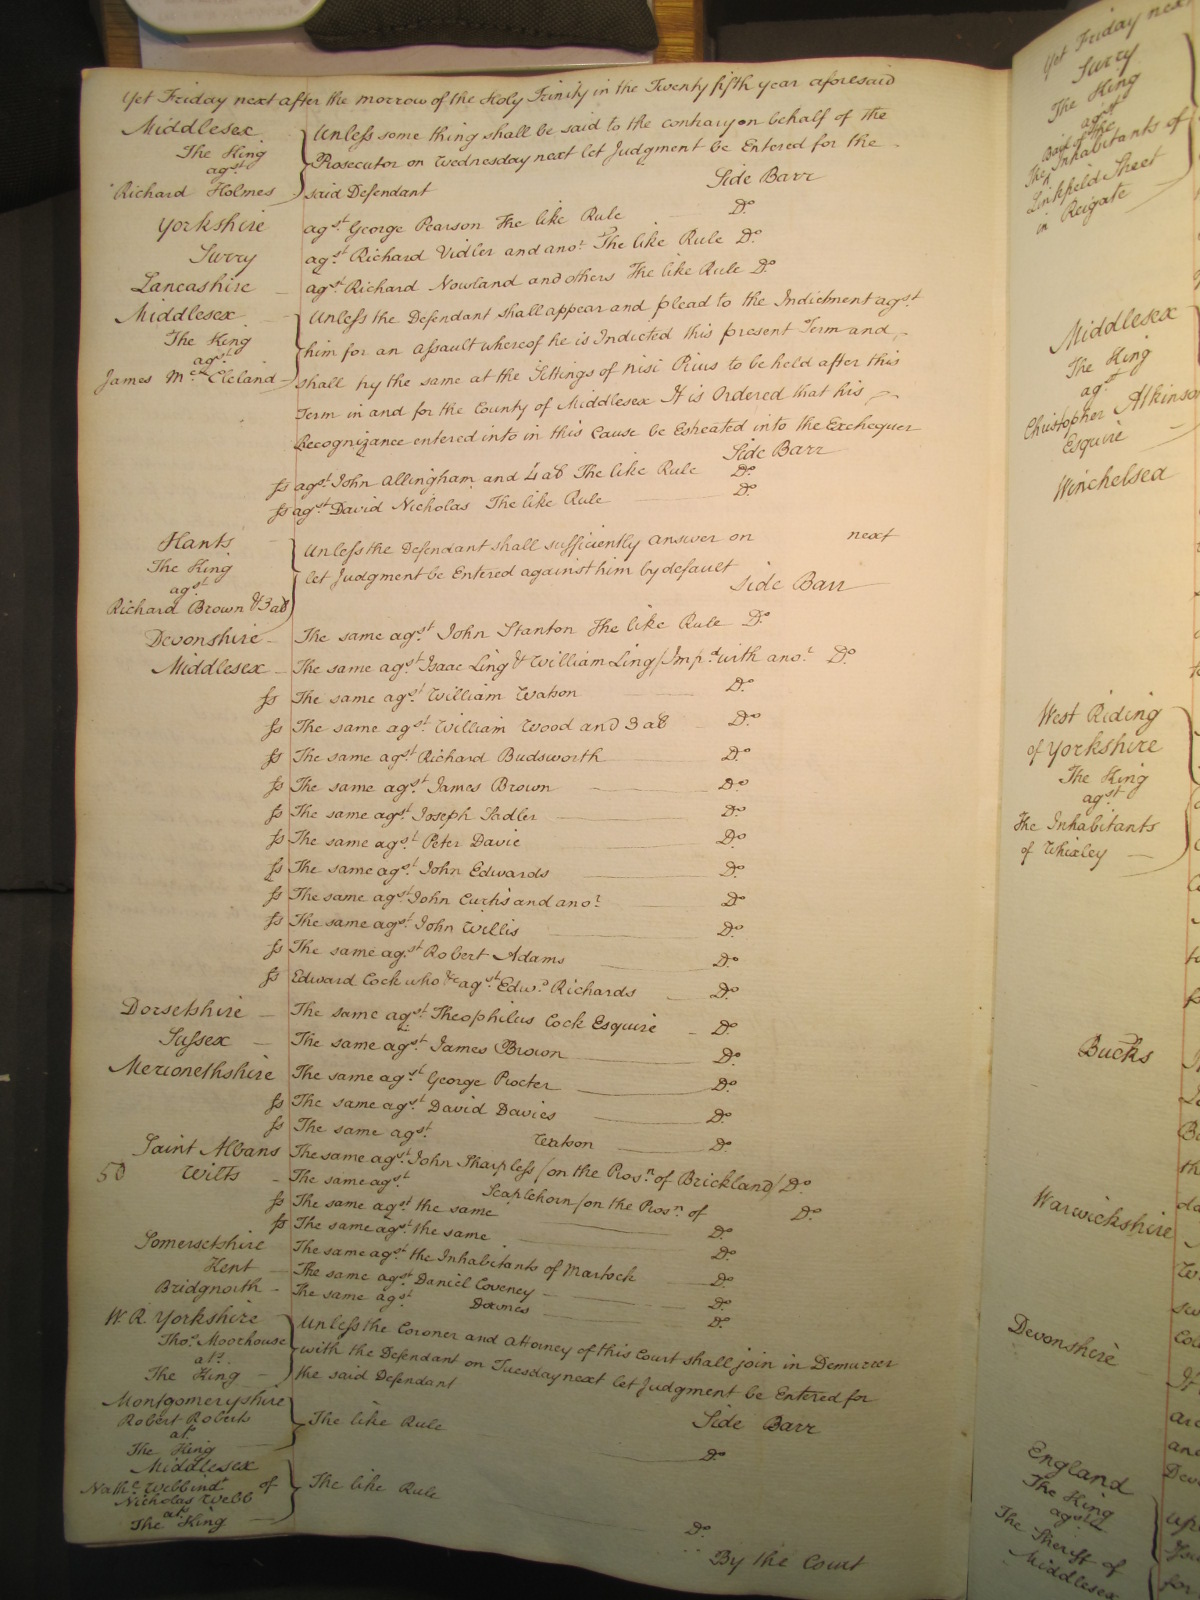 Yet Friday next after the morrow of the Holy Trinity in the Twenty fifth year aforesaid
Middlesex
The King
agst
Richard Holmes
Unless some thing shall be said to the contrary on behalf of the
Prosecutor on Wednesday next let Judgment be Entered for the
said Defendant
Side Barr
Yorkshire agst George Pearson The like Rule Do
Surry agst Richard Vidler and anor The like Rule Do
Lancashire agst Richard Nowland and others The like Rule Do
Middlesex
The King
agst
James Mc Cleland
Unless the Defendant shall appear and plead to the Indictment agst
him for an Assault whereof he is Indicted this present Term and
shall try the same at the Sittings of Nisi Prius to be held after this
Term in and for the County of Middlesex It is Ordered that his
Recognizance entered into in this Cause be Estreated into the Exchequer
Side Barr
ss agst John Allingham and 4 als The like Rule Do
ss agst David Nicholas The like Rule Do
Hants
The King
agst
Richard Brown & 3 als
Unless the Defendant shall sufficiently answer on next
let Judgment be Entered against him by default
Side Barr
Devonshire The same agst John Stanton The like Rule Do
Middlesex The same agst Isaac Ling & William Ling /Impd with anor Do
ss The same agst William Watson Do
ss The same agst William Wood and 3 als Do
ss The same agst Richard Budsworth Do
ss The same agst James Brown Do
ss The same agst Joseph Sadler Do
ss The same agst Peter Davie Do
ss The same agst John Edwards Do
ss The same agst John Curtis and anor Do
ss The same agst John Willis Do
ss The same agst Robert Adams Do
ss Edward Cock who &c agst Edwd Richards Do
Dorsetshire The same agst Theophilus Cock Esquire Do
Sussex The same agst James Brown Do
Merionethshire The same agst George Procter Do
ss The same agst David Davies Do
ss The same agst Watson Do
Saint Albans The same agst John Sharpless /on the Prosn of Brickland/ Do
50 Wilts The same agst Scaplehorn /on the Prosn of Do
ss The same agst the same Do
ss The same agst the same Do
Somersetshire The same agst the Inhabitants of Martock Do
Kent The same agst Daniel Coveney Do
Bridgnorth The same agst Downes Do
W. R. Yorkshire
Thos Moorhouse
ats
The King
Unless the Coroner and Attorney of this Court shall join in Demurrer
with the Defendant on Tuesday next let Judgment be Entered for
the said Defendant
Side Barr
Montgomeryshire
Robert Roberts
ats
The King
The like Rule
Do
Middlesex
of
Nicholas Webb
ats
The King
The like Rule
Do
By the Court
Yet Friday next
Surry
The King
agst
The Inhabitants of
Linkfield Street
in Reigate
Middlesex
The King
agst
Christopher Atkinson
Esquire
Winchelsea
West Riding
of Yorkshire
The King
agst
The Inhabitants
of Whixley
Bucks
Warwickshire
Devonshire
England
The King
agst
The Sheriff of
Middlesex